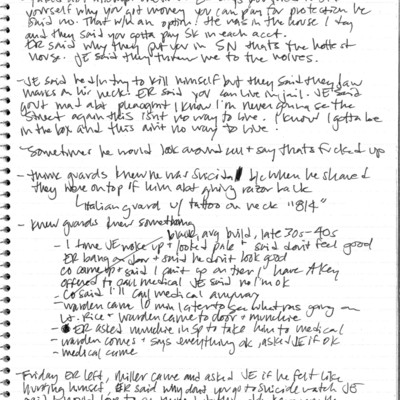 yourself why you got money you can pay for protection he
said no. That wasn't an option. He was in the house 1 day
and they said you gotta pay 5K in each acct.
ER said why they put you in SN that's the hottest
house. JE said they threw me to the wolves.
- JE said he didn't try to kill himself but they said they saw
marks on his neck. ER said you can live in jail. JE said
govt mad abt pleagmnt I know I'm never gonna see the
street again this isn't no way to live. I know I gotta be
in the box and this ain't no way to live.
- Sometimes he would look around cell + say that's fucked up
- thinks guards knew he was suicidal b/c when he shaved
they were on top of him abt giving razor back
Italian guard w/ tattoo on neck "814"
- knew guards knew something
black, avg build, late 30s-40s
- 1 time JE woke up + looked pale + said don't feel good
ER bang on door + said he don't look good
co came up + said I can't go on tier, I have A key
offered to call medical JE said no I'm ok
- CO said I'll call medical anyway
- warden came 10 min later to see what was going on
Lt. Rice + warden came to door +
- ER asked in Sp to take him to medical
- warden comes + says everything ok, asked JE if ok
- medical came
- Friday ER left, miller came and asked JE if he felt like
hurting himself, ER said why don't you go to suicide watch JE